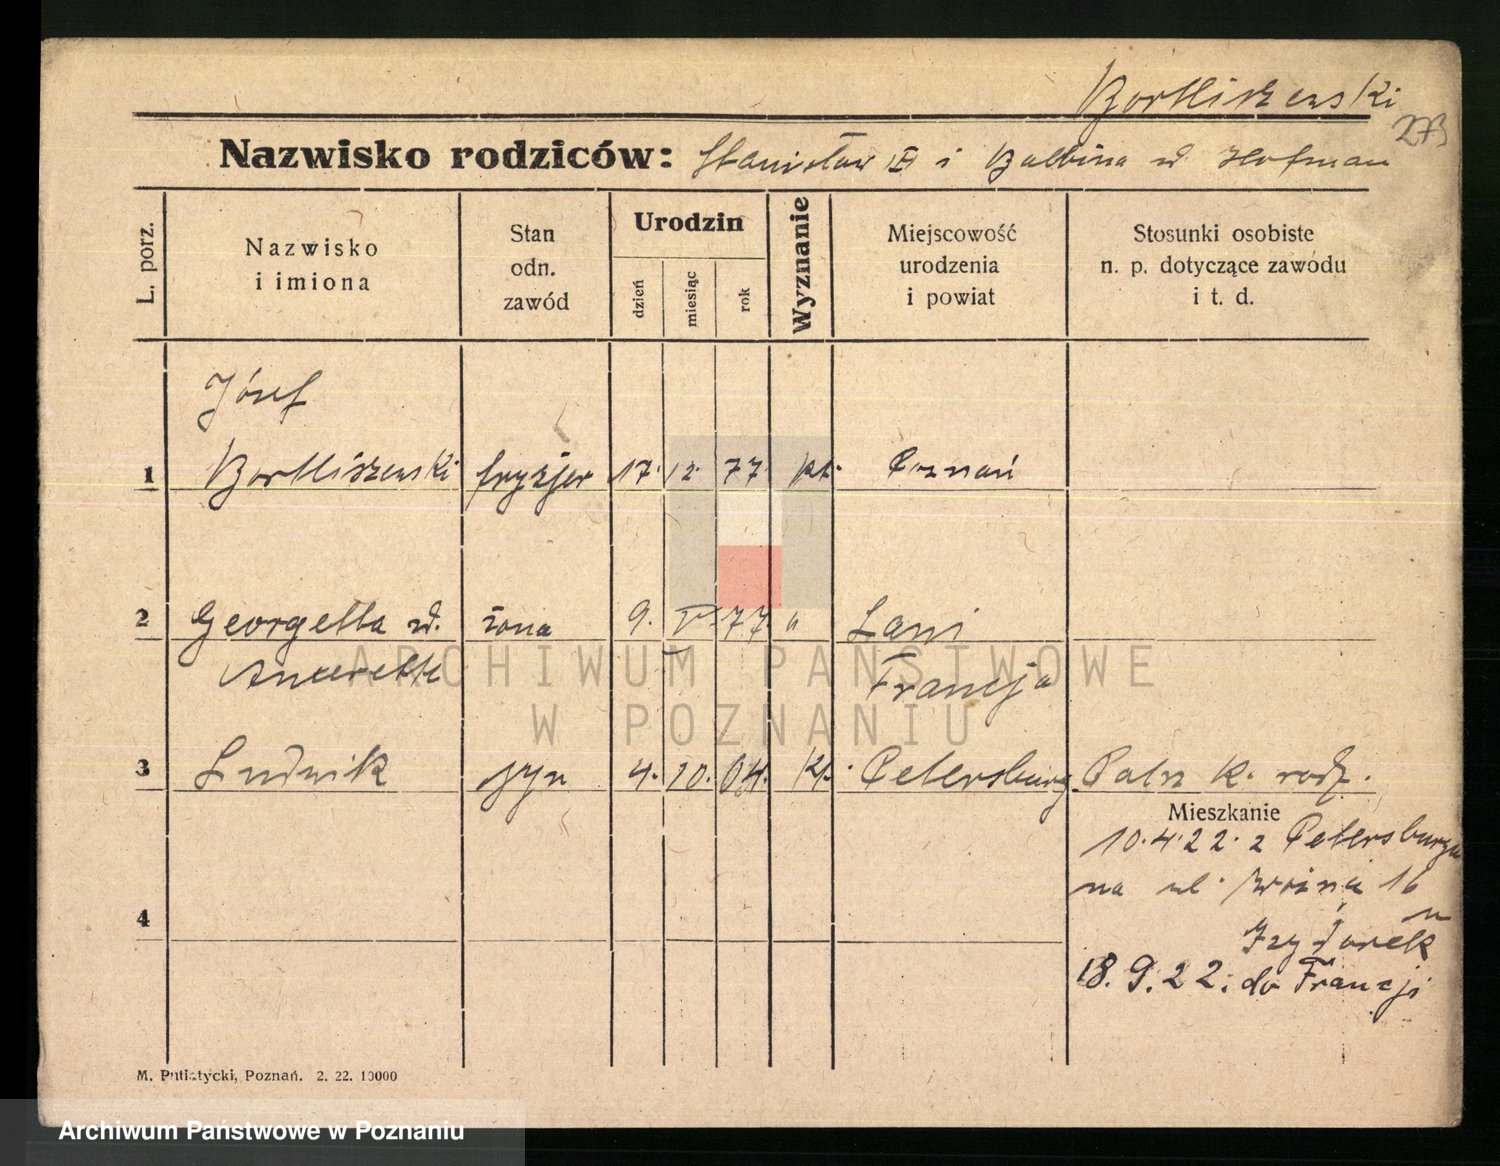 Bortliszewski
273
Nazwisko rodziców: Stanisław i Balbina Hofman
L. porz.
Nazwisko
i imiona
Stan
odn.
zawód
Urodzin
dzień
miesiąc
rok
Wyznanie
Miejscowość
urodzenia
i powiat
Stosunki osobiste
n. p. dotyczące zawodu
i t. d.
Józef
1 Bortliszewski fryzjer 17. 12. 77. kt. Poznań
2 Georgetta żona 9. V. 77. "
Francja
3 Ludwik syn 4. 10. 04. kt. Petersburg k. rodz.
Mieszkanie
10.4.22. z Petersburga
na ul. 16
u
4
18.9.22. do Francji
M. Putiatycki, Poznań. 2. 22. 10000
ARCHIWUM PAŃSTWOWE
W POZNANIU
Archiwum Państwowe w Poznaniu